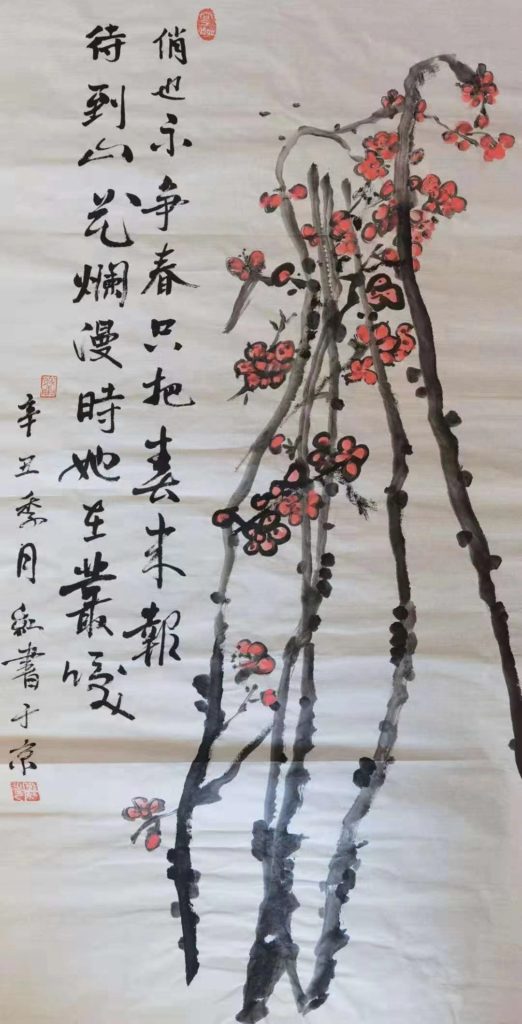 俏也不争春只把春来報
待到山花爛漫時她在叢咲
辛丑季月红書于京